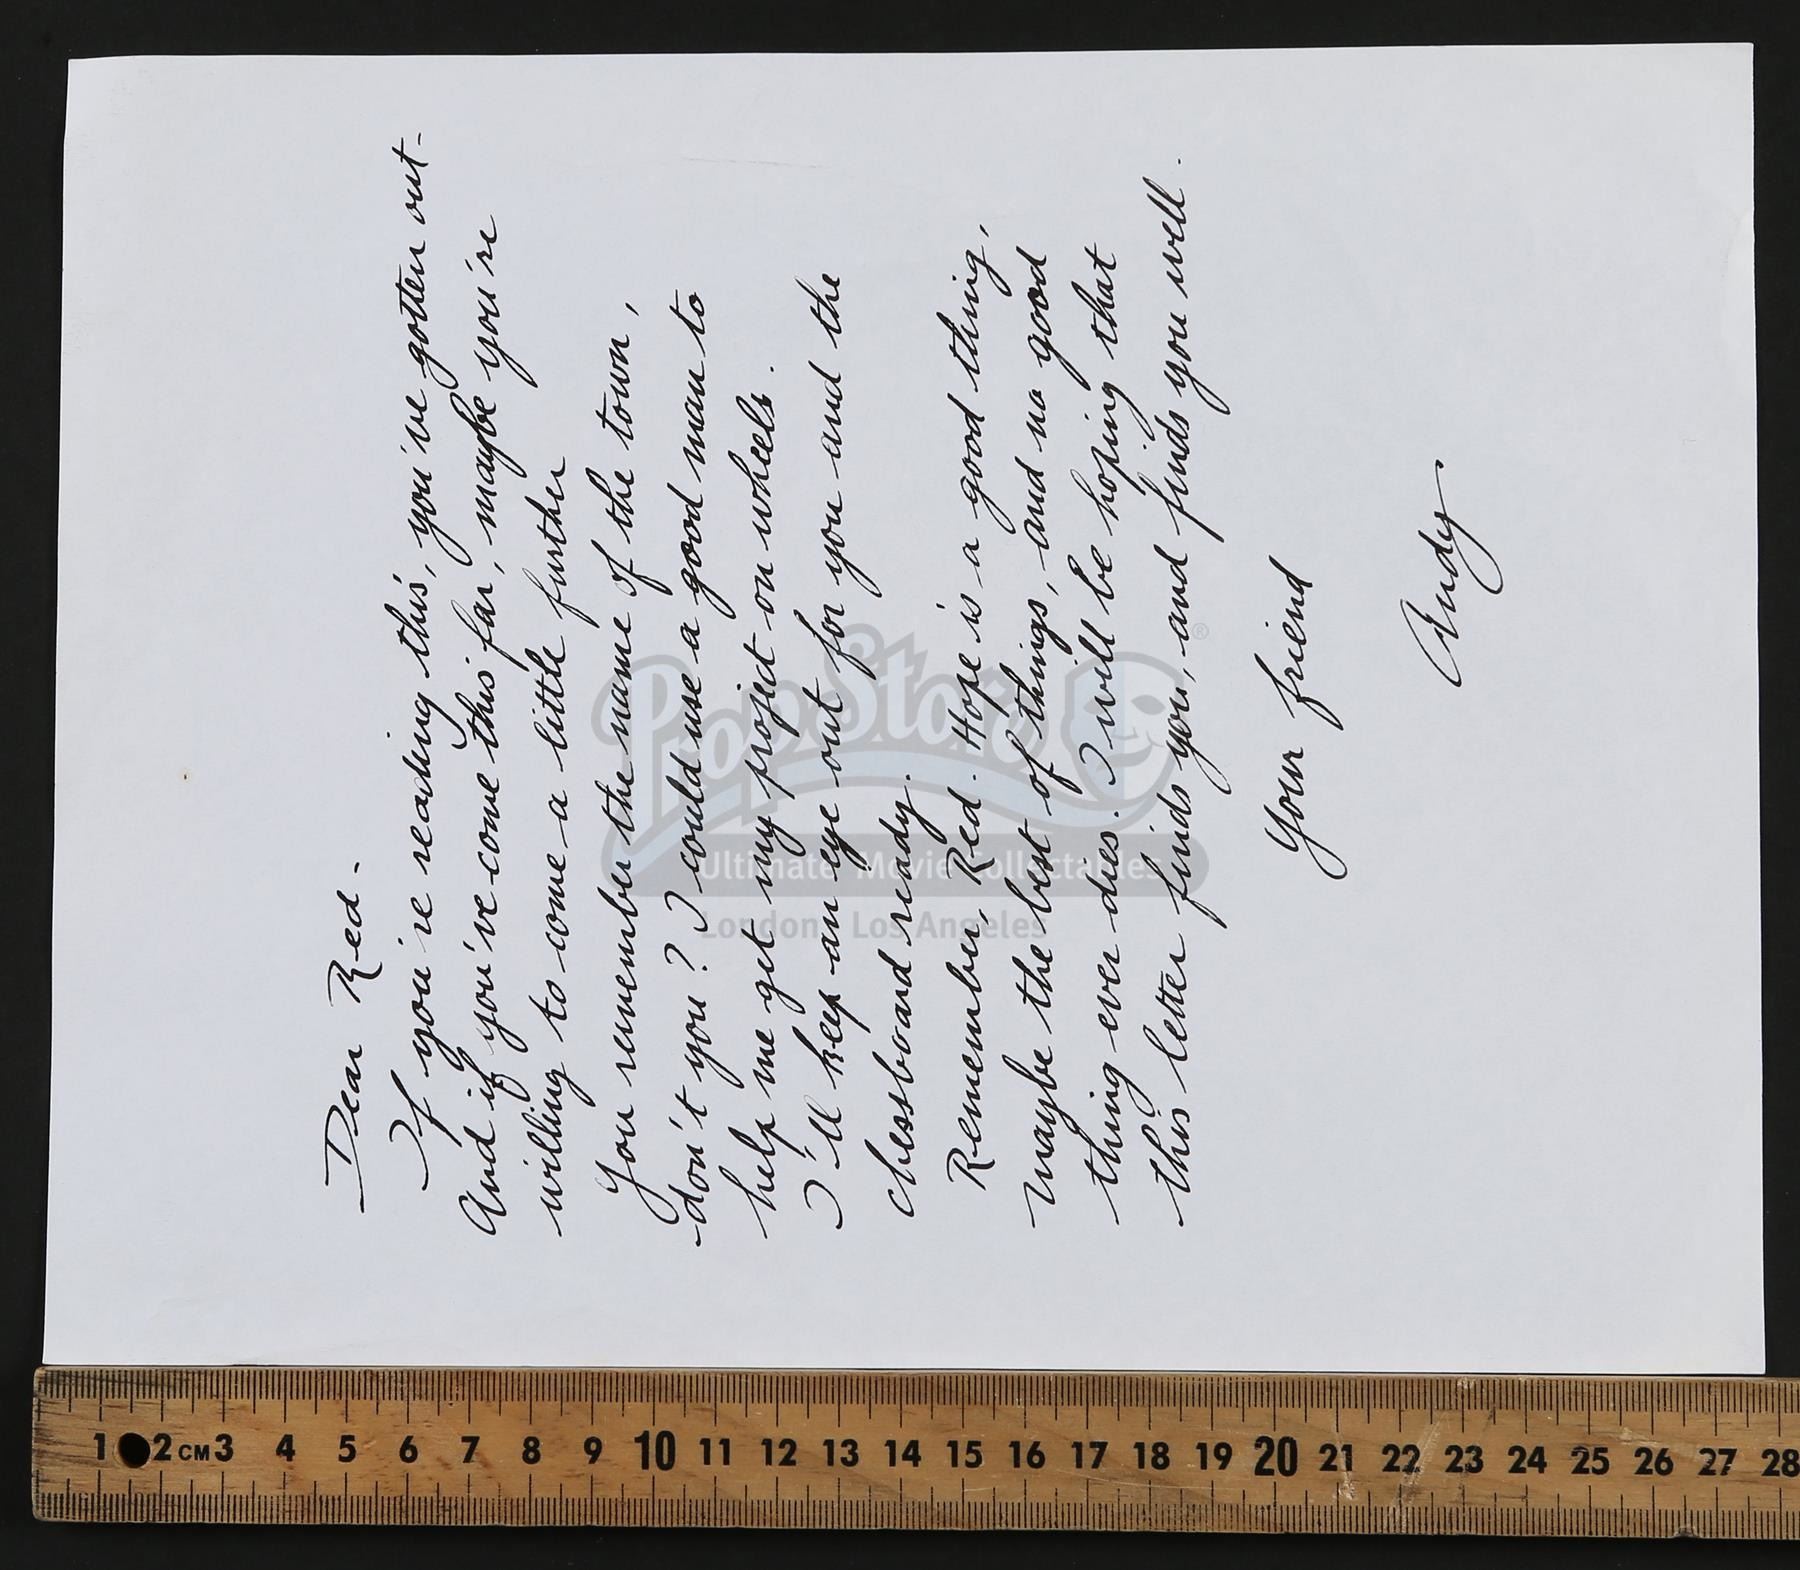 Dear Red.
If you're reading this, you've gotten out.
And if you've come this far, maybe you're
willing to come a little further
You remember the name of the town,
don't you? I could use a good man to
help me get my project on wheels.
I'll keep an eye out for you and the
chessboard ready.
Remember, Red. Hope is a good thing,
maybe the best of things, and no good
thing ever dies. I will be hoping that
this letter finds you, and finds you well.
Your friend
Andy
Prop Store ®
Ultimate Movie Collectables
London Los Angeles
1 2 CM 3 4 5 6 7 8 9 10 11 12 13 14 15 16 17 18 19 20 21 22 23 24 25 26 27 28